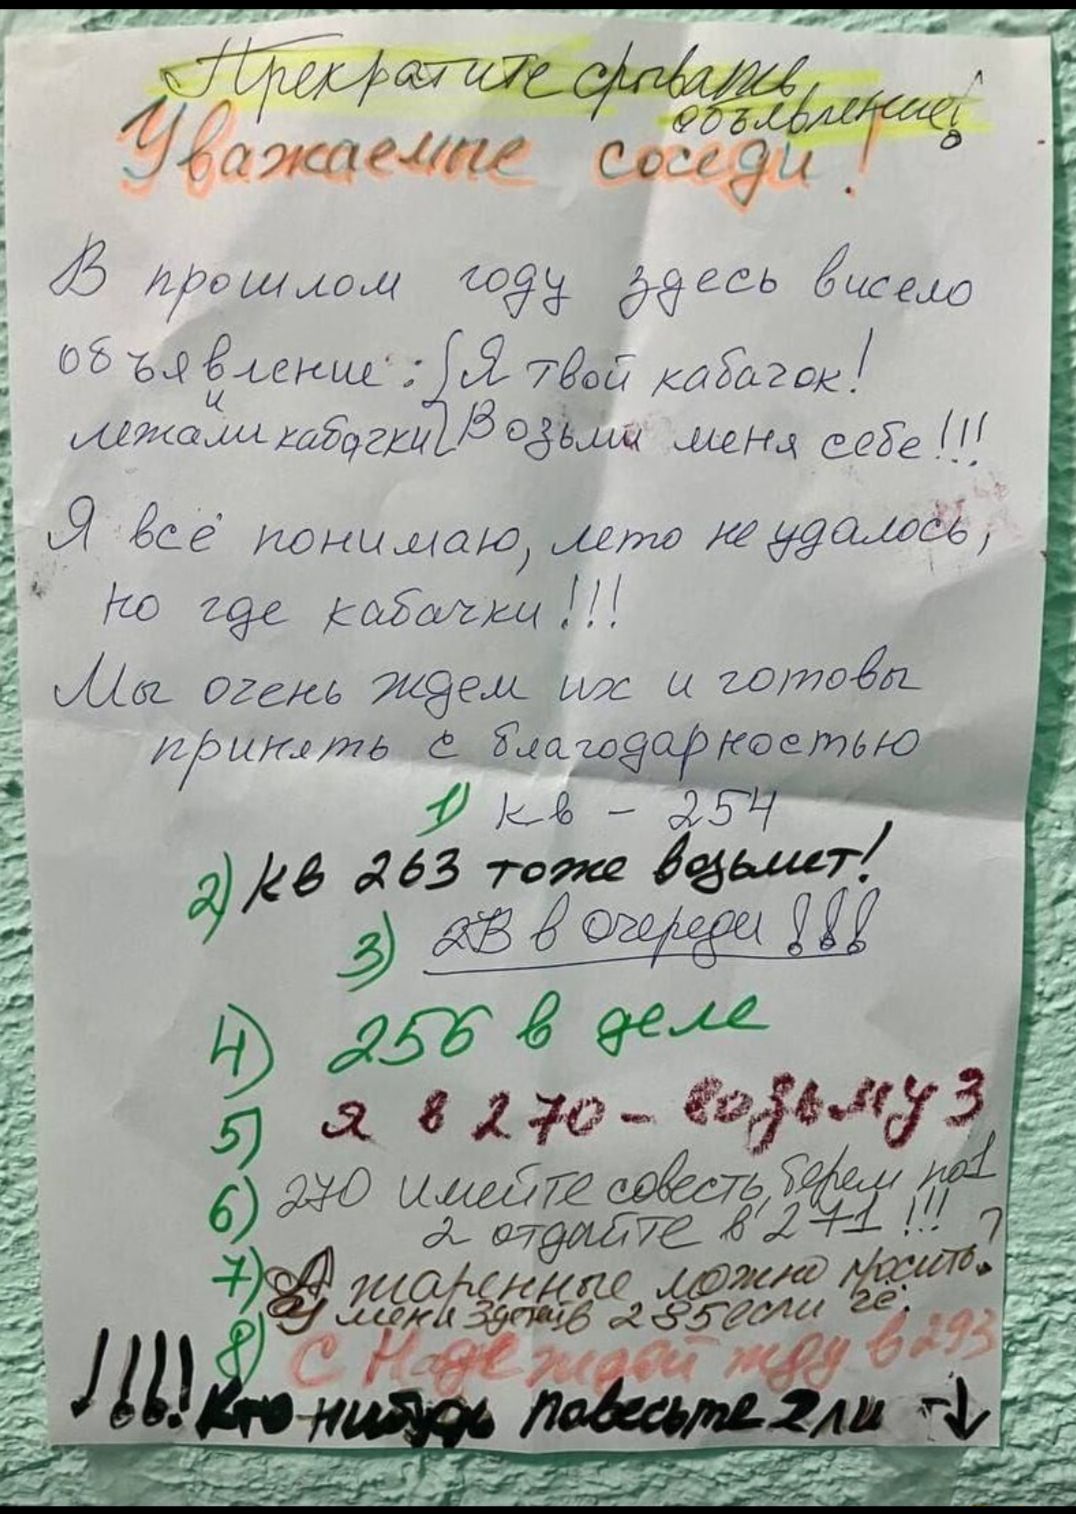 Прекратите срывать
объявление!
Уважаемые соседи!
В прошлом году здесь висело
объявление: Я твой кабачок!
и
лежали кабачки Возьми меня себе!!!
Я всё понимаю, лето не удалось,
но где кабачки!!!
Мы очень ждем их и готовы
принять с благодарностью
1) кв - 254
2) кв 263 тоже возьмет!
3) в очереди!!!
4) 256 в деле
5) я в 270 - возьму 3
6) 270 имейте совесть, берем по 1
2 отдайте в 271!!!
7) А жаренные можно просить?
У меня 3 детей в 285 если чё.
8) С Надеждой жду в 293
!!!! Кто-нибудь повесьте 2 ли